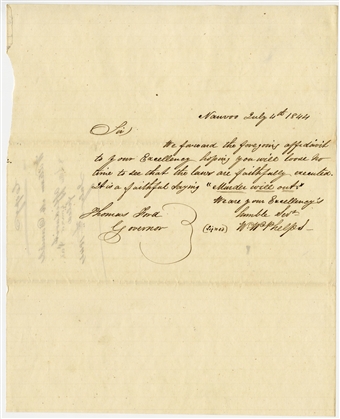 Nauvoo July 4th 1844
Sir
We forward the foregoing affidavit
to your Excellency hoping you will loose no
time to see that the laws are faithfully executed.
It is a faithful saying "Murder will out."
We are your Excellency's
humble Servt
Thomas Ford
Governor
(Signed) Wm W Phelps